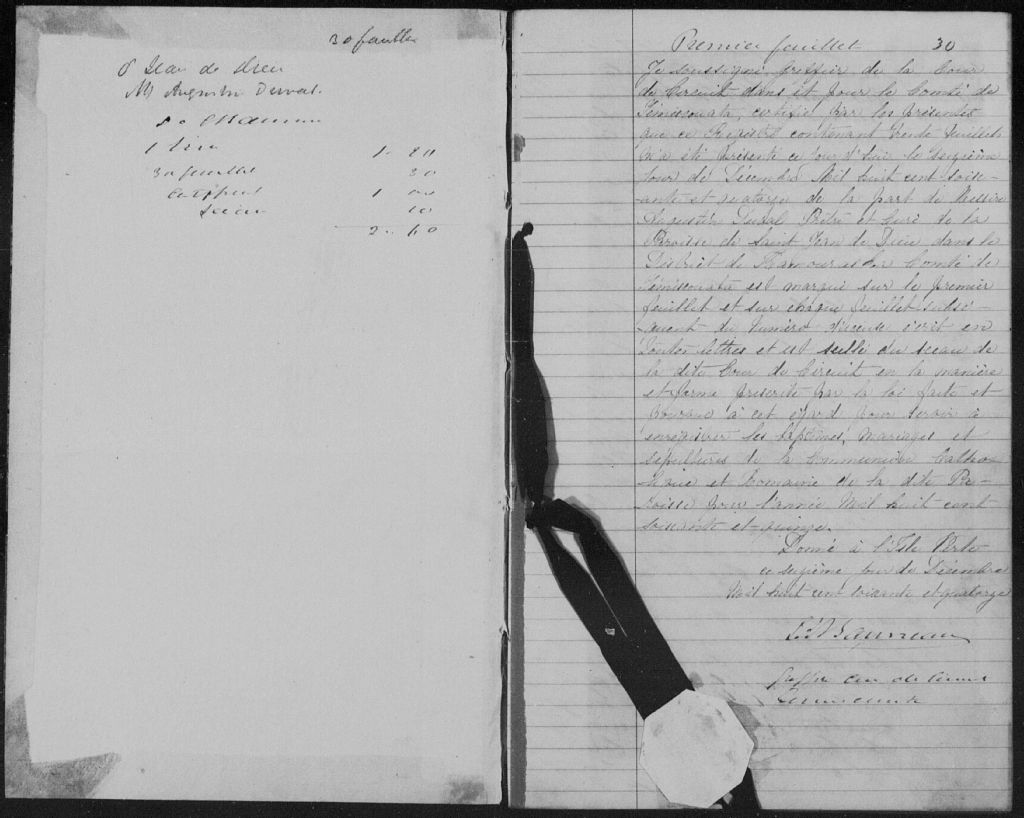 30 feuilles
St Jean de Dieu
Mr Augustin Duval
1 livre 1. 20
30 feuilles 30
1 00
Sceau 10
2. 60
Premier feuillet 30
Je soussigné greffier de la Cour
de Circuit dans et pour le Comté de
Témiscouata, certifie par les présentes
que ce Registre contenant trente feuillets
m'a été présenté ce jour d'hui le seizième
jour de Décembre Mil huit cent soix-
ante et quatorze de la part de Messire
Augustin Duval Prêtre et Curé de la
Paroisse de Saint Jean de Dieu dans le
District de Kamouraska Comté de
Témiscouata est marqué sur le premier
feuillet et sur chaque feuillet subsé-
quent du numéro d'iceux écrit en
toutes lettres et est scellé du sceau de
la dite Cour de Circuit en la manière
et forme prescrite par la loi faite et
pourvue à cet égard pour servir à
enregistrer les baptêmes, mariages et
sépultures de la Communion Catho-
lique et Romaine de la dite Pa-
roisse pour l'année Mil huit cent
soixante et quinze.
Donné à l'Isle Verte
ce seizième jour de Décembre
Mil huit cent soixante et quatorze
Greffier Cour de Circuit
Témiscouata